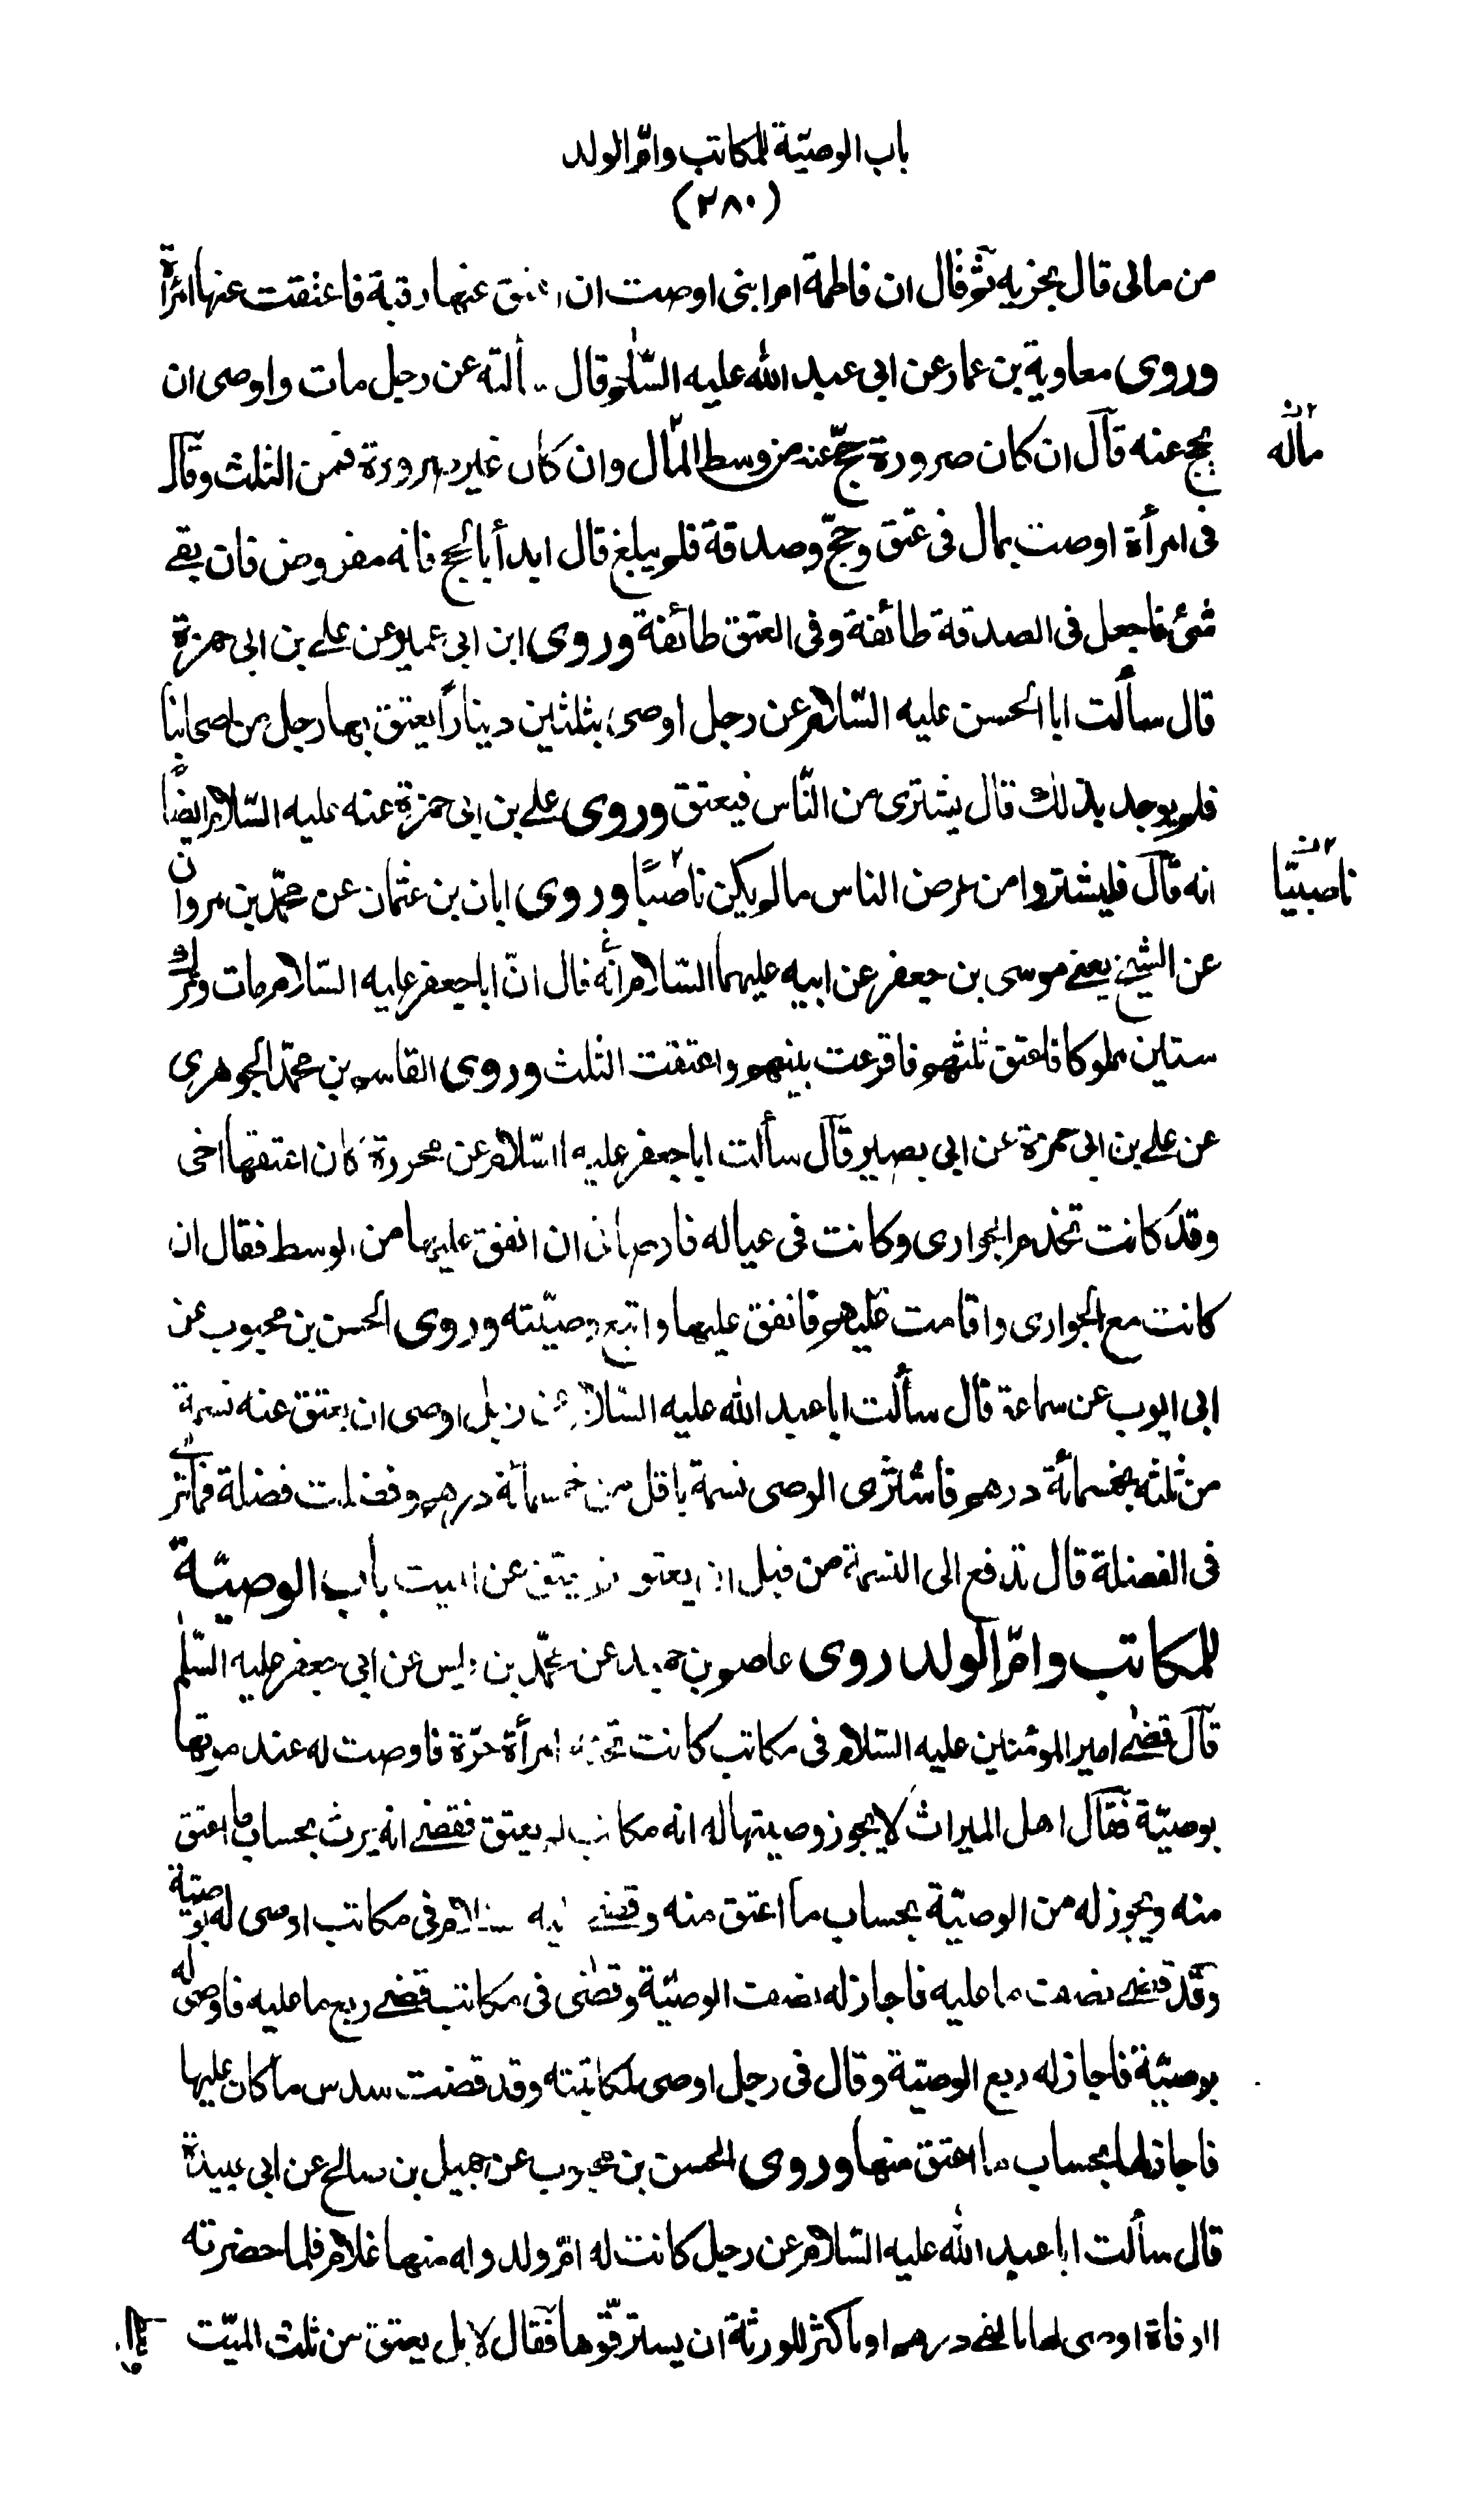 باب الوصيّة للمكاتب وامّ الولد
(٢٨٠)
من مالى قال يجزيه ثم قال ان فاطمة ام ابنى اوصت ان اعتق عنها رقبة فاعتقت عنها امرأة
وروى معاوية بن عمار عن ابى عبد الله عليه السّلام قال سألته عن رجل مات واوصى ان
يحج عنه قال ان كان صرورة حجّ عنه من وسط المال وان كان غير صرورة فمن الثلث وقال
ماله
فى امرأة اوصت بمال فى عتق وحجّ وصدقة فلم يبلغ قال ابدأ بالحج فانه مفروض فان بقى
شئ فاجعل فى الصدقة طائفة وفى العتق طائفة وروى ابن ابى عمير عن على بن ابى حمزة
قال سألت ابا الحسن عليه السّلام عن رجل اوصى بثلثين دينارًا يعتق بها رجل من اصحابنا
فلم يوجد بذلك قال يشترى من النّاس فيعتق وروى على بن ابى حمزة عنه عليه السّلام ايضًا
انه قال فليشتروا من عرض الناس ما لم يكن ناصبًا وروى ابان بن عثمان عن محمّد بن مروان
ناصبيّا
عن الشيخ يعنى موسى بن جعفر عن ابيه عليهما السّلام انّه قال انّ ابا جعفر عليه السّلام مات وترك
ستين مملوكا فاعتق ثلثهم فاقرعت بينهم واعتقت الثلث وروى القاسم بن محمّد الجوهرى
عن على بن ابى حمزة عن ابى بصير قال سألت ابا جعفر عليه السّلام عن محررة كان اعتقها اخى
وقد كانت تخدم الجوارى وكانت فى عياله فاوصانى ان انفق عليها من الوسط فقال ان
كانت مع الجوارى واقامت عليهم فانفق عليها واتبع وصيّته وروى الحسن بن محبوب عن
ابى ايوب عن سماعة قال سألت ابا عبد الله عليه السّلام عن رجل اوصى ان يعتق عنه نسمة
من ثلثه بخمسمائة درهم فاشترى الوصى نسمة باقل من خمسمائة درهم وفضلت فضلة فما ترى
فى الفضلة قال تدفع الى النسمة من قبل ان يعتق ثم يعتق عن الميت باب الوصيّة
للمكاتب وامّ الولد روى عاصم بن حميد عن محمّد بن قيس عن ابى جعفر عليه السّلم
قال قضى امير المومنين عليه السّلام فى مكاتب كانت تحته امرأة حرّة فاوصت له عند موتها
بوصيّة فقال اهل الميراث لا يجوز وصيتها له انه مكاتب لم يعتق فقضى انه يرث بحساب ما اعتق
منه ويجوز له من الوصيّة بحساب ما اعتق منه وقضى عليه السلام فى مكاتب اوصى له بوصيّة
وقد قضى نصف ما عليه فاجاز له نصف الوصيّة وقضى فى مكاتب قضى ربع ما عليه فاوصى له
بوصيّة فاجاز له ربع الوصيّة وقال فى رجل اوصى لمكاتبته وقد قضت سدس ما كان عليها
فاجاز لها بحساب ما اعتق منها وروى الحسن بن محبوب عن جميل بن صالح عن ابى عبيدة
قال سألت ابا عبد الله عليه السّلام عن رجل كانت له امّ ولد وله منها غلام فلما حضرته
الوفاة اوصى لها بالفى درهم او باكثر للورثة ان يسترقّوها فقال لا بل يعتق من ثلث الميّت